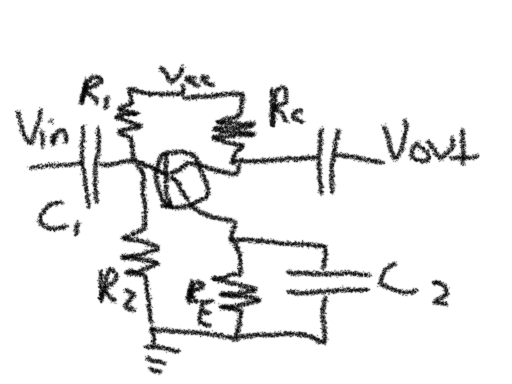 Vcc
R1
Rc
Vin
Vout
C1
R2
RE
C2